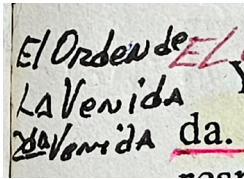 El Orden de EL
LA Venida
Venida da.